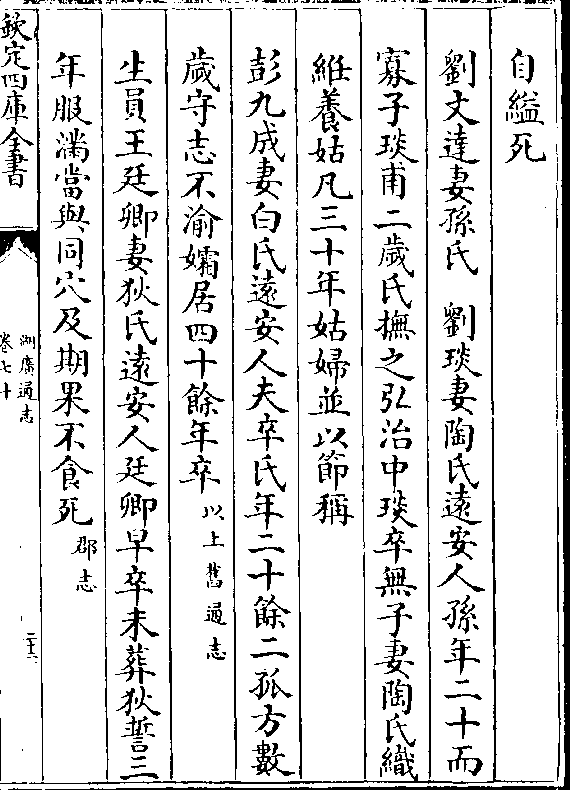 自縊死
劉文達妻孫氏　劉琰妻陶氏遠安人孫年二十而
寡子琰甫二歲氏撫之弘治中琰卒無子妻陶氏織
絍養姑凡三十年姑婦並以節稱
彭九成妻白氏遠安人夫卒氏年二十餘二孤方數
歲守志不渝孀居四十餘年卒以上舊通志
生員王廷卿妻狄氏遠安人廷卿早卒未葬狄誓三
年服滿當與同穴及期果不食死郡志
欽定四庫全書
湖廣通志
卷七十